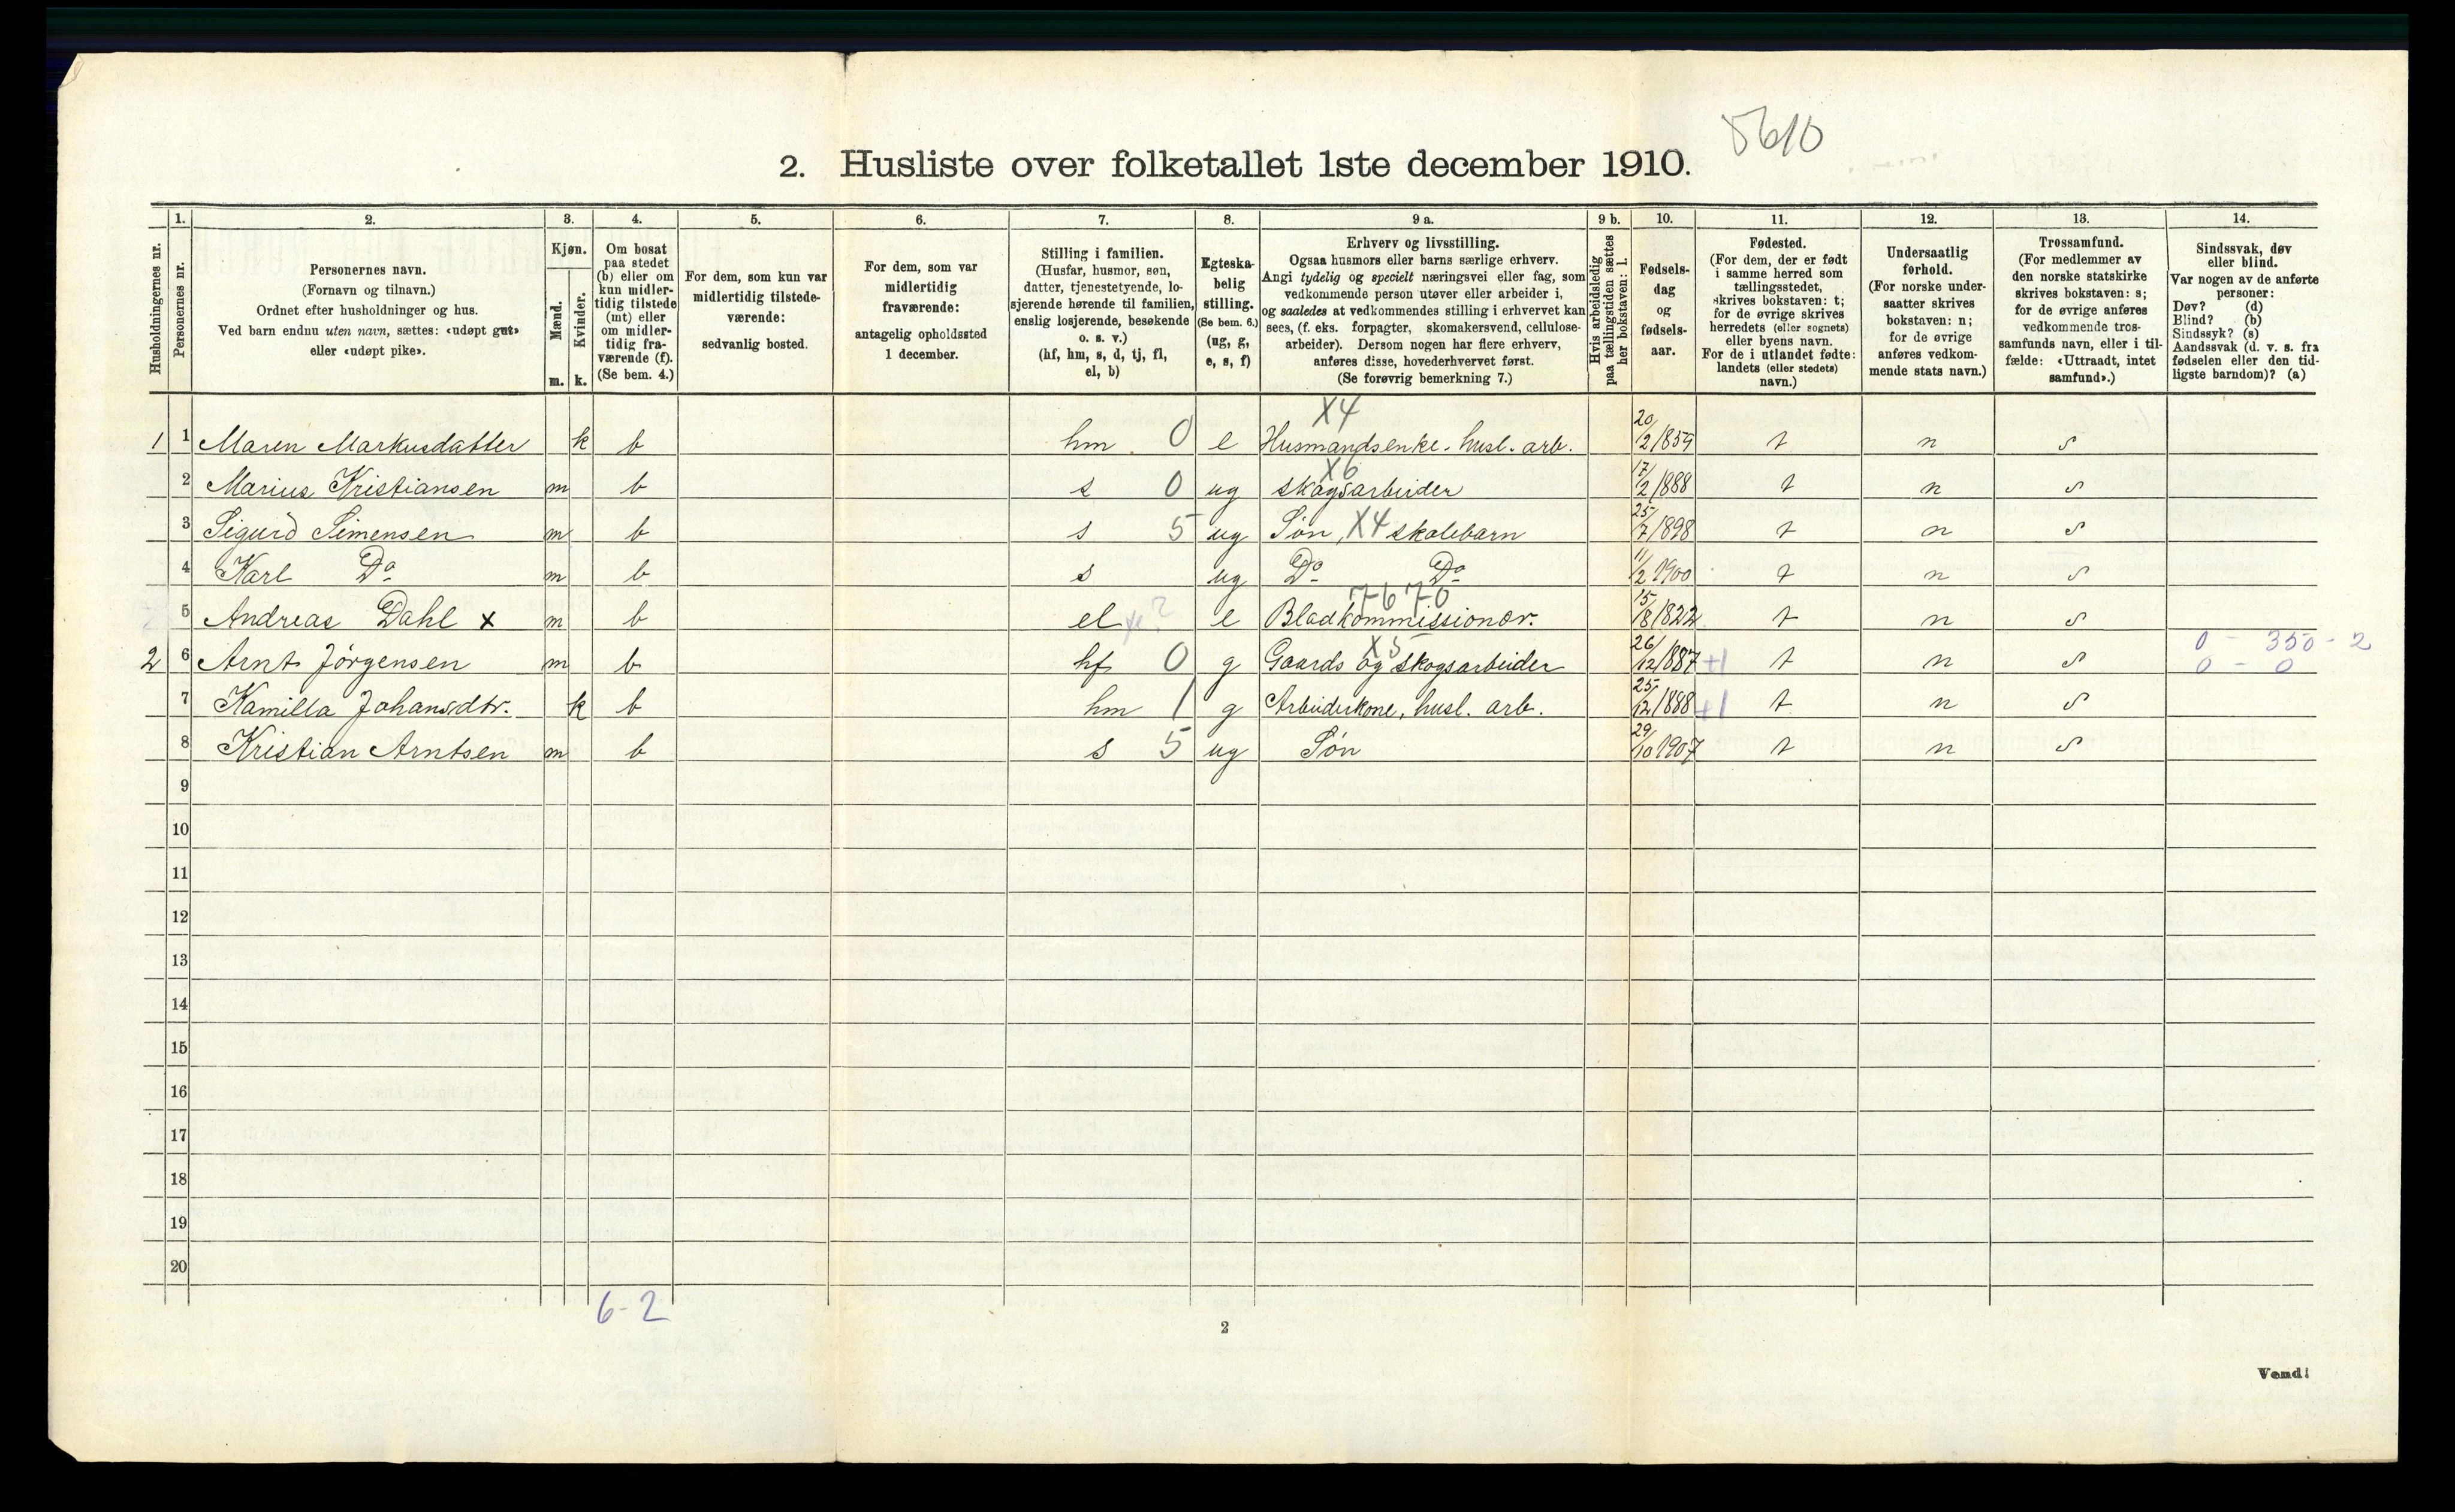 5610
2. Husliste over folketallet 1ste december 1910.
Husholdningernes nr.
1.
Personernes nr.
2.
Personernes navn.
(Fornavn og tilnavn.)
Ordnet efter husholdninger og hus.
Ved barn endnu uten navn, sættes: «udøpt gut»
eller «udøpt pike».
3.
Kjøn.
Mænd.
m.
Kvinder.
k.
4.
Om bosat
paa stedet
(b) eller om
kun midler-
tidig tilstede
(mt) eller
om midler-
tidig fra-
værende (f).
(Se bem. 4.)
5.
For dem, som kun var
midlertidig tilstede-
værende:
sedvanlig bosted.
6.
For dem, som var
midlertidig
fraværende:
antagelig opholdssted
1 december.
7.
Stilling i familien.
(Husfar, husmor, søn,
datter, tjenestetyende, lo-
sjerende hørende til familien,
enslig losjerende, besøkende
o. s. v.)
(hf, hm, s, d, tj, fl,
el, b)
8.
Egteska-
belig
stilling.
(Se bem. 6.)
(ug, g,
e, s, f)
9 a.
Erhverv og livsstilling.
Ogsaa husmors eller barns særlige erhverv.
Angi tydelig og specielt næringsvei eller fag, som
vedkommende person utøver eller arbeider i,
og saaledes at vedkommendes stilling i erhvervet kan
sees, (f. eks. forpagter, skomakersvend, cellulose-
arbeider). Dersom nogen har flere erhverv,
anføres disse, hovederhvervet først.
(Se forøvrig bemerkning 7.)
9 b.
Hvis arbeidsledig
paa tællingstiden sættes
her bokstaven: l.
10.
Fødsels-
dag
og
fødsels-
aar.
11.
Fødested.
(For dem, der er født
i samme herred som
tællingsstedet,
skrives bokstaven: t;
for de øvrige skrives
herredets (eller sognets)
eller byens navn.
For de i utlandet fødte:
landets (eller stedets)
navn.)
12.
Undersaatlig
forhold.
(For norske under-
saatter skrives
bokstaven: n;
for de øvrige
anføres vedkom-
mende stats navn.)
13.
Trossamfund.
(For medlemmer av
den norske statskirke
skrives bokstaven: s;
for de øvrige anføres
vedkommende tros-
samfunds navn, eller i til-
fælde: «Uttraadt, intet
samfund».)
14.
Sindssvak, døv
eller blind.
Var nogen av de anførte
personer:
Døv? (d)
Blind? (b)
Sindssyk? (s)
Aandssvak (d. v. s. fra
fødselen eller den tid-
ligste barndom)? (a)
X4
1 1 Maren Markusdatter k b hm 0 e Husmandsenke. husl. arb. 20/2 1859 t n s
X6
2 Marius Kristiansen m b s 0 ug skogsarbeider 17/2 1888 t n s
3 Sigurd Simensen m b s 5 ug Søn, X4 skolebarn 25/7 1898 t n s
4 Karl Do m b s ug Do Do 11/2 1900 t n s
7670
5 Andreas Dahl x m b el e Bladkommissionær. 15/8 1822 t n s
X5
2 6 Arnt Jörgensen m b hf 0 g Gaards og skogsarbeider 26/12 1887 +1 t n s 0 - 350 - 2
0 - 0
7 Kamilla Johansdtr. k b hm 1 g Arbeiderkone, husl. arb. 25/12 1888 +1 t n s
8 Kristian Arntsen m b s 5 ug Søn 29/10 1907 t n s
9
10
11
12
13
14
15
16
17
18
19
20
6-2
2
Vend!